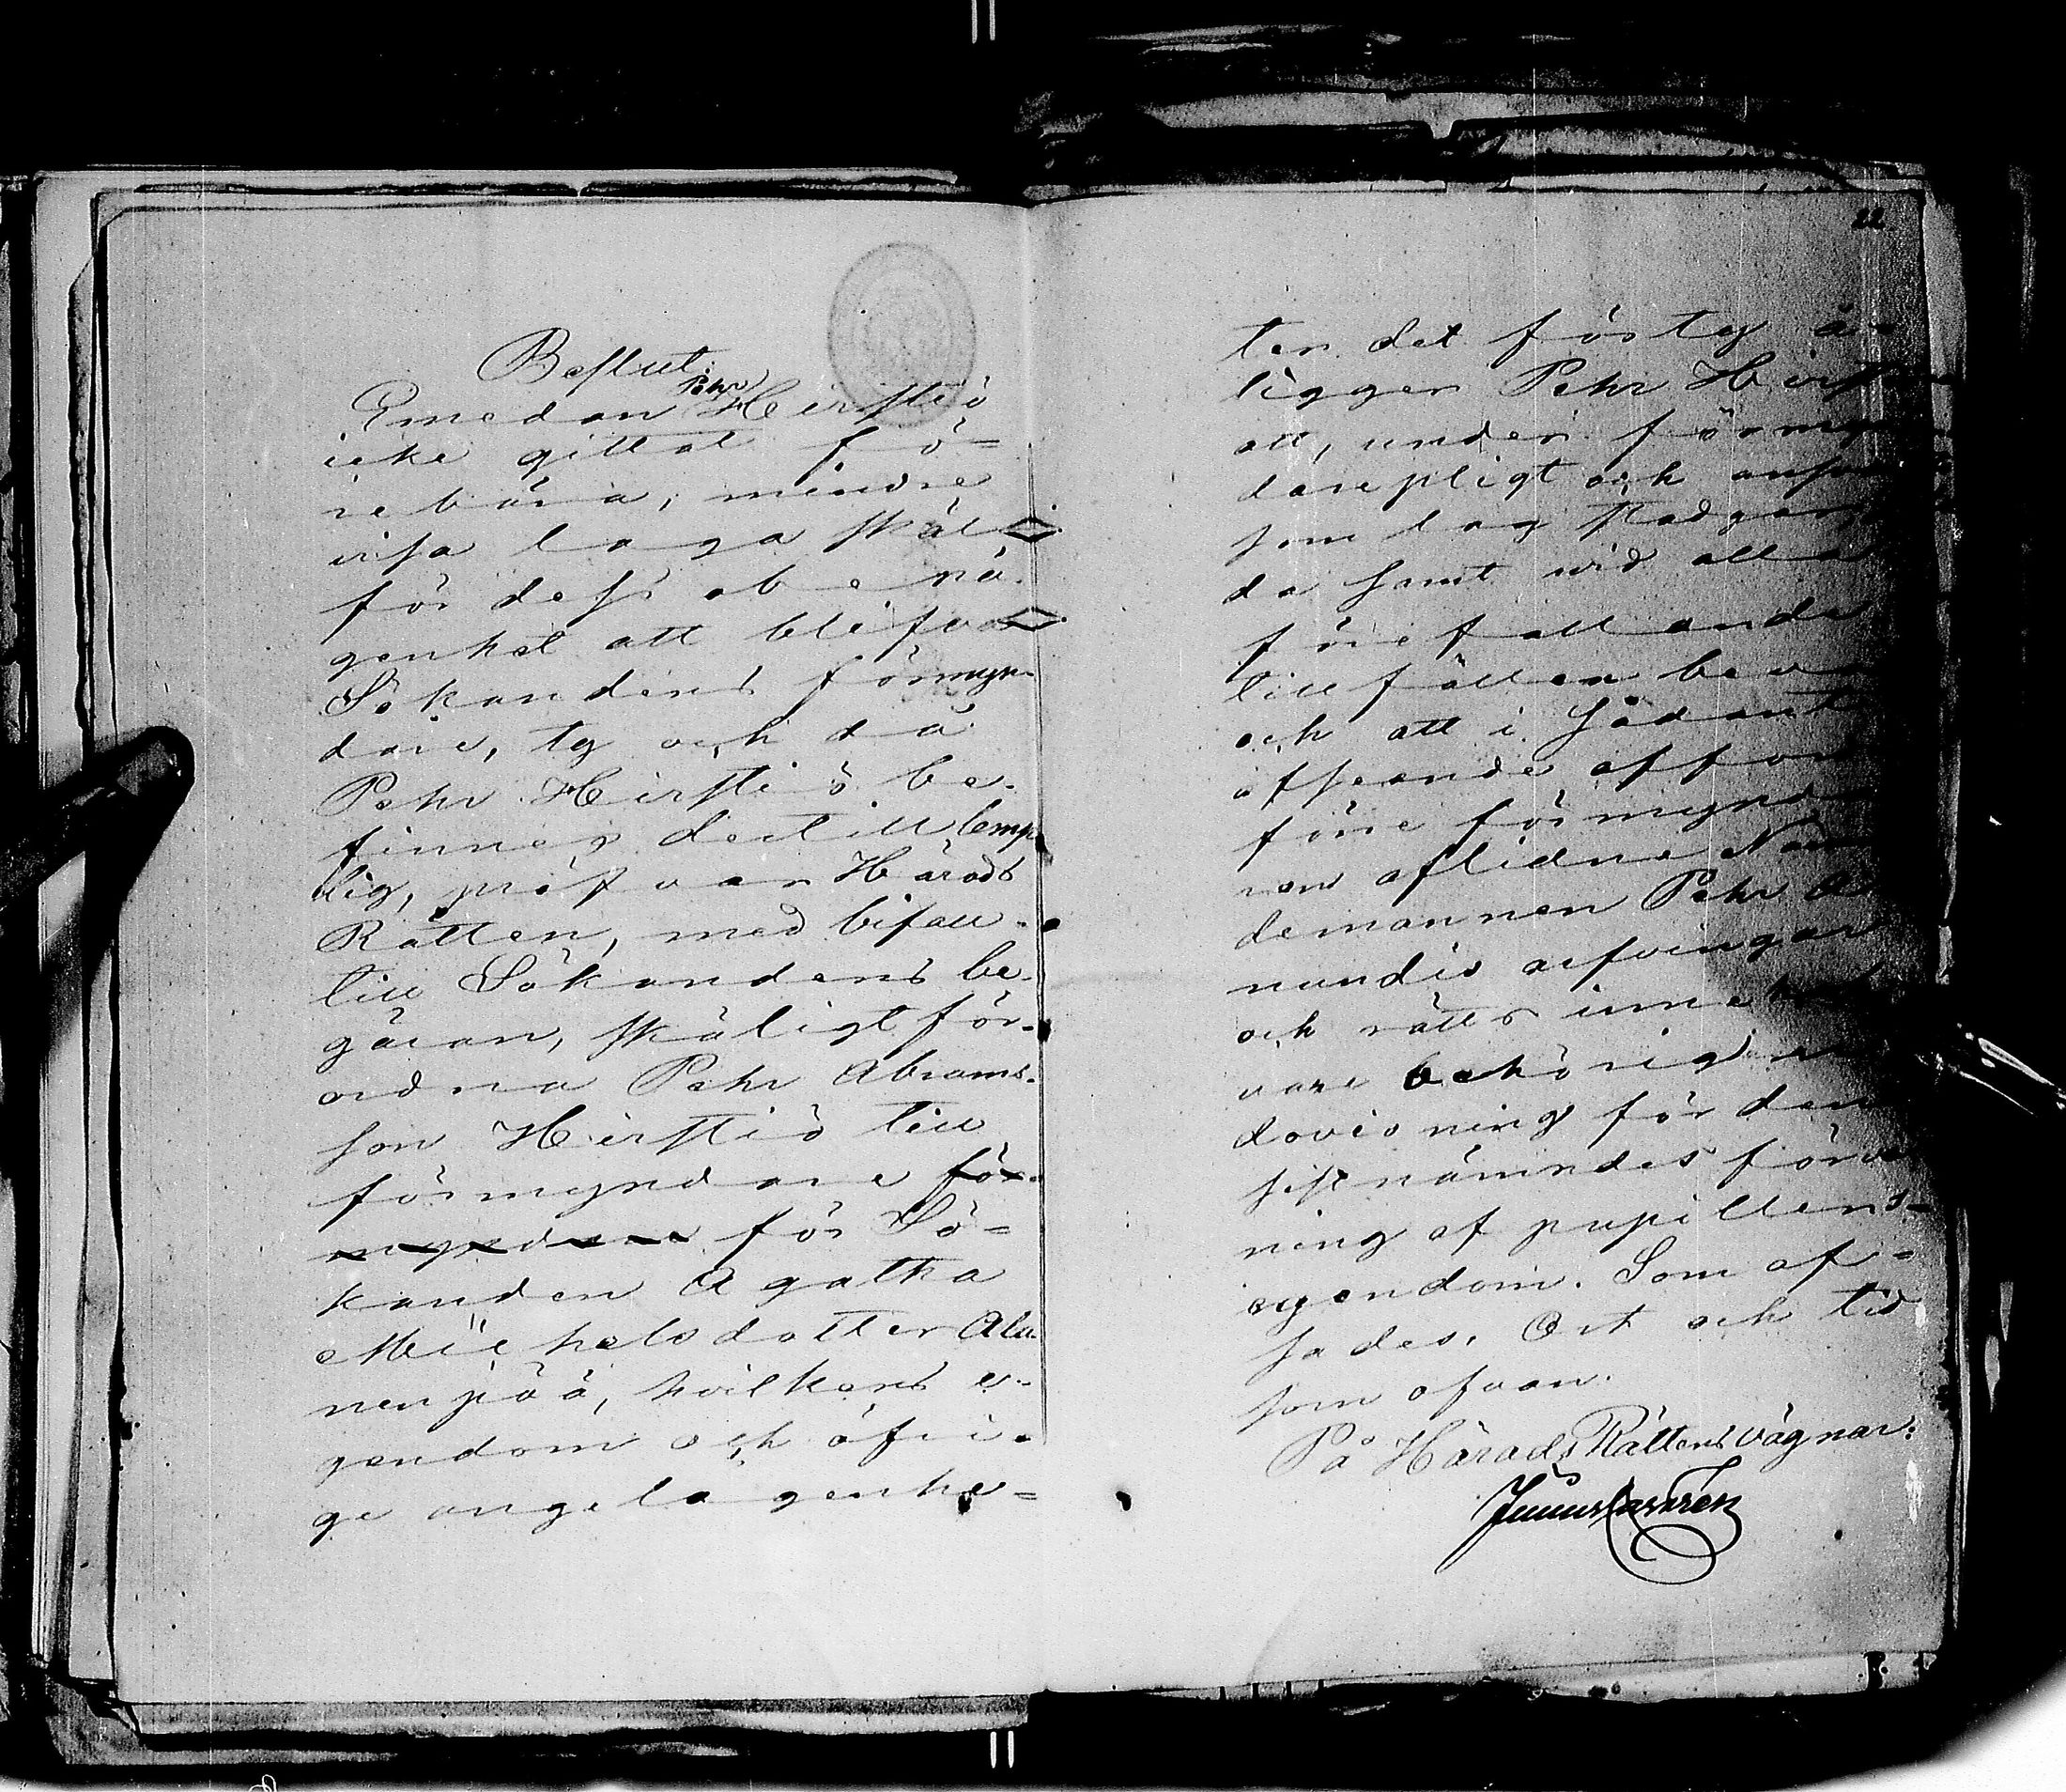 Beslut:
Emedan Pehr Heirstiö
icke gittat fö=
rebära, mindre
visa laga skäl
för dess obenä-
genhet att blifva
Sökandens förmyn-
dare, ty och då
Pehr Heirstiö be-
finnes dertill lemp-
lig, pröfvar Härads
Rätten, med bifall
till Sökandens be-
gäran, skäligt för-
ordna Pehr Abrams-
son Heirstiö till
förmyndare för-
myndare för Sö=
kanden Agatha
Michelsdotter Ala-
nenpää, hvilkens e-
gendom och öfri-
ge angelägenhe=
22
ter det förty å-
ligger Pehr Heirstiö
att, under förmyn-
darepligt och ansvar
som lag stadgar,
da samt vid alla
förefallande
tillfällen beva
och att i sådant
afseende affor
före förmynda
ren aflidne Näm
demannen Pehr
nundis arfvingar
och rätts inneha
vare behörig re
dovisning för den
sistnämndes förva
ning af pupillens
egendom. Som af=
sades. Ort och tid
som ofvan.
På Härads Rättens vägnar: